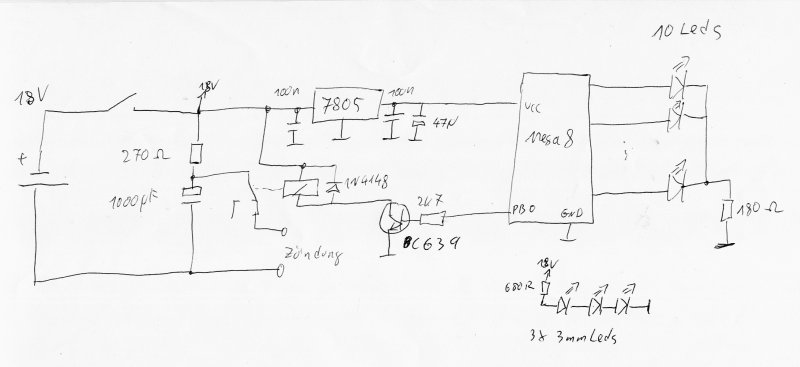 10 Leds
18V
18V
100n
7805
100n
VCC
47µ
+
270 Ω
Mega 8
1000µF
1N4148
2k7
PB0
GND
180 Ω
BC639
Zündung
18V
680Ω
3x 3mm Leds